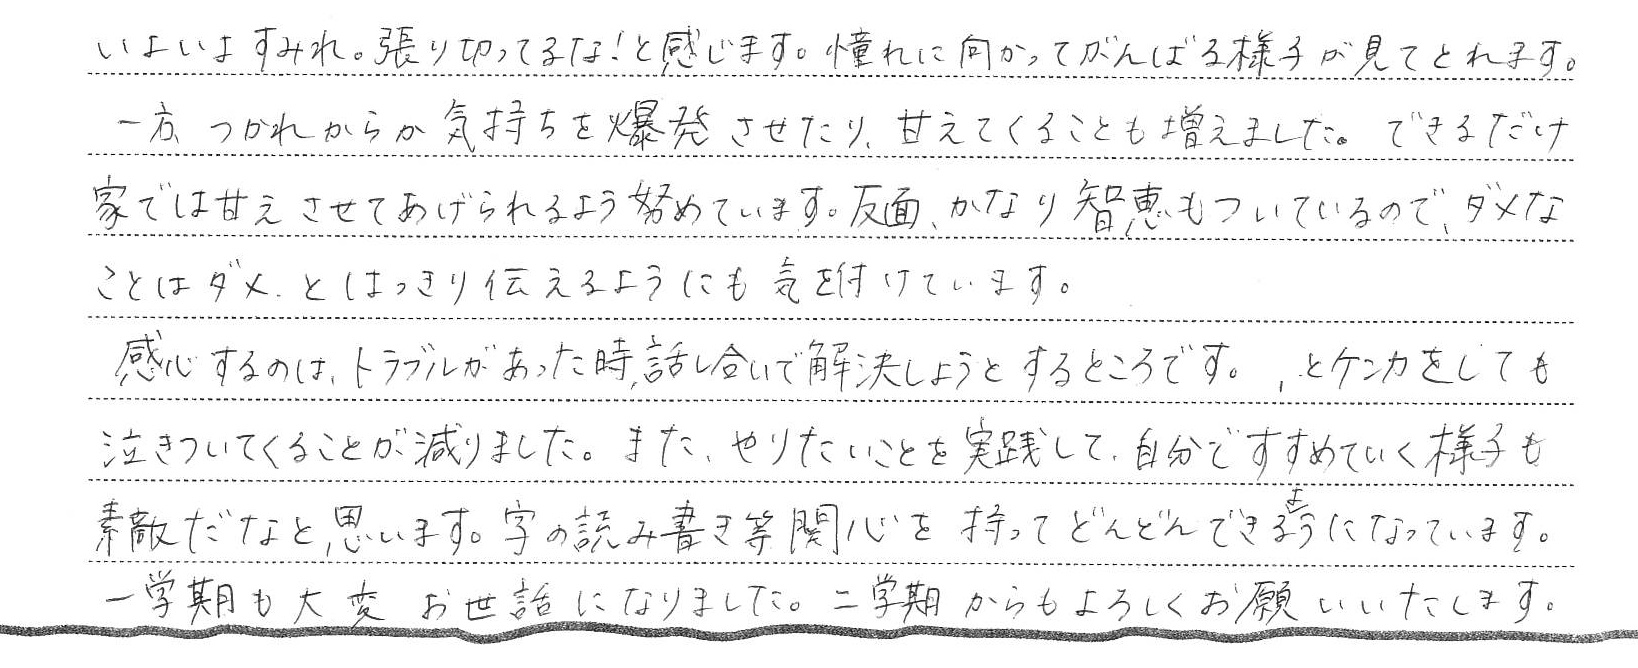 いよいよすみれ。張り切ってるな!と感じます。憧れに向かってがんばる様子が見てとれます。
一方、つかれからか気持ちを爆発させたり、甘えてくることも増えました。できるだけ
家では甘えさせてあげられるよう努めています。反面、かなり智恵もついているので、ダメな
ことはダメ、とはっきり伝えるようにも気を付けています。
感心するのは、トラブルがあった時、話し合いで解決しようとするところです。、とケンカをしても
泣きついてくることが減りました。また、やりたいことを実践して、自分ですすめていく様子も
素敵だなと思います。字の読み書き等関心を持ってどんどんできるようになっています。
一学期も大変お世話になりました。二学期からもよろしくお願いいたします。